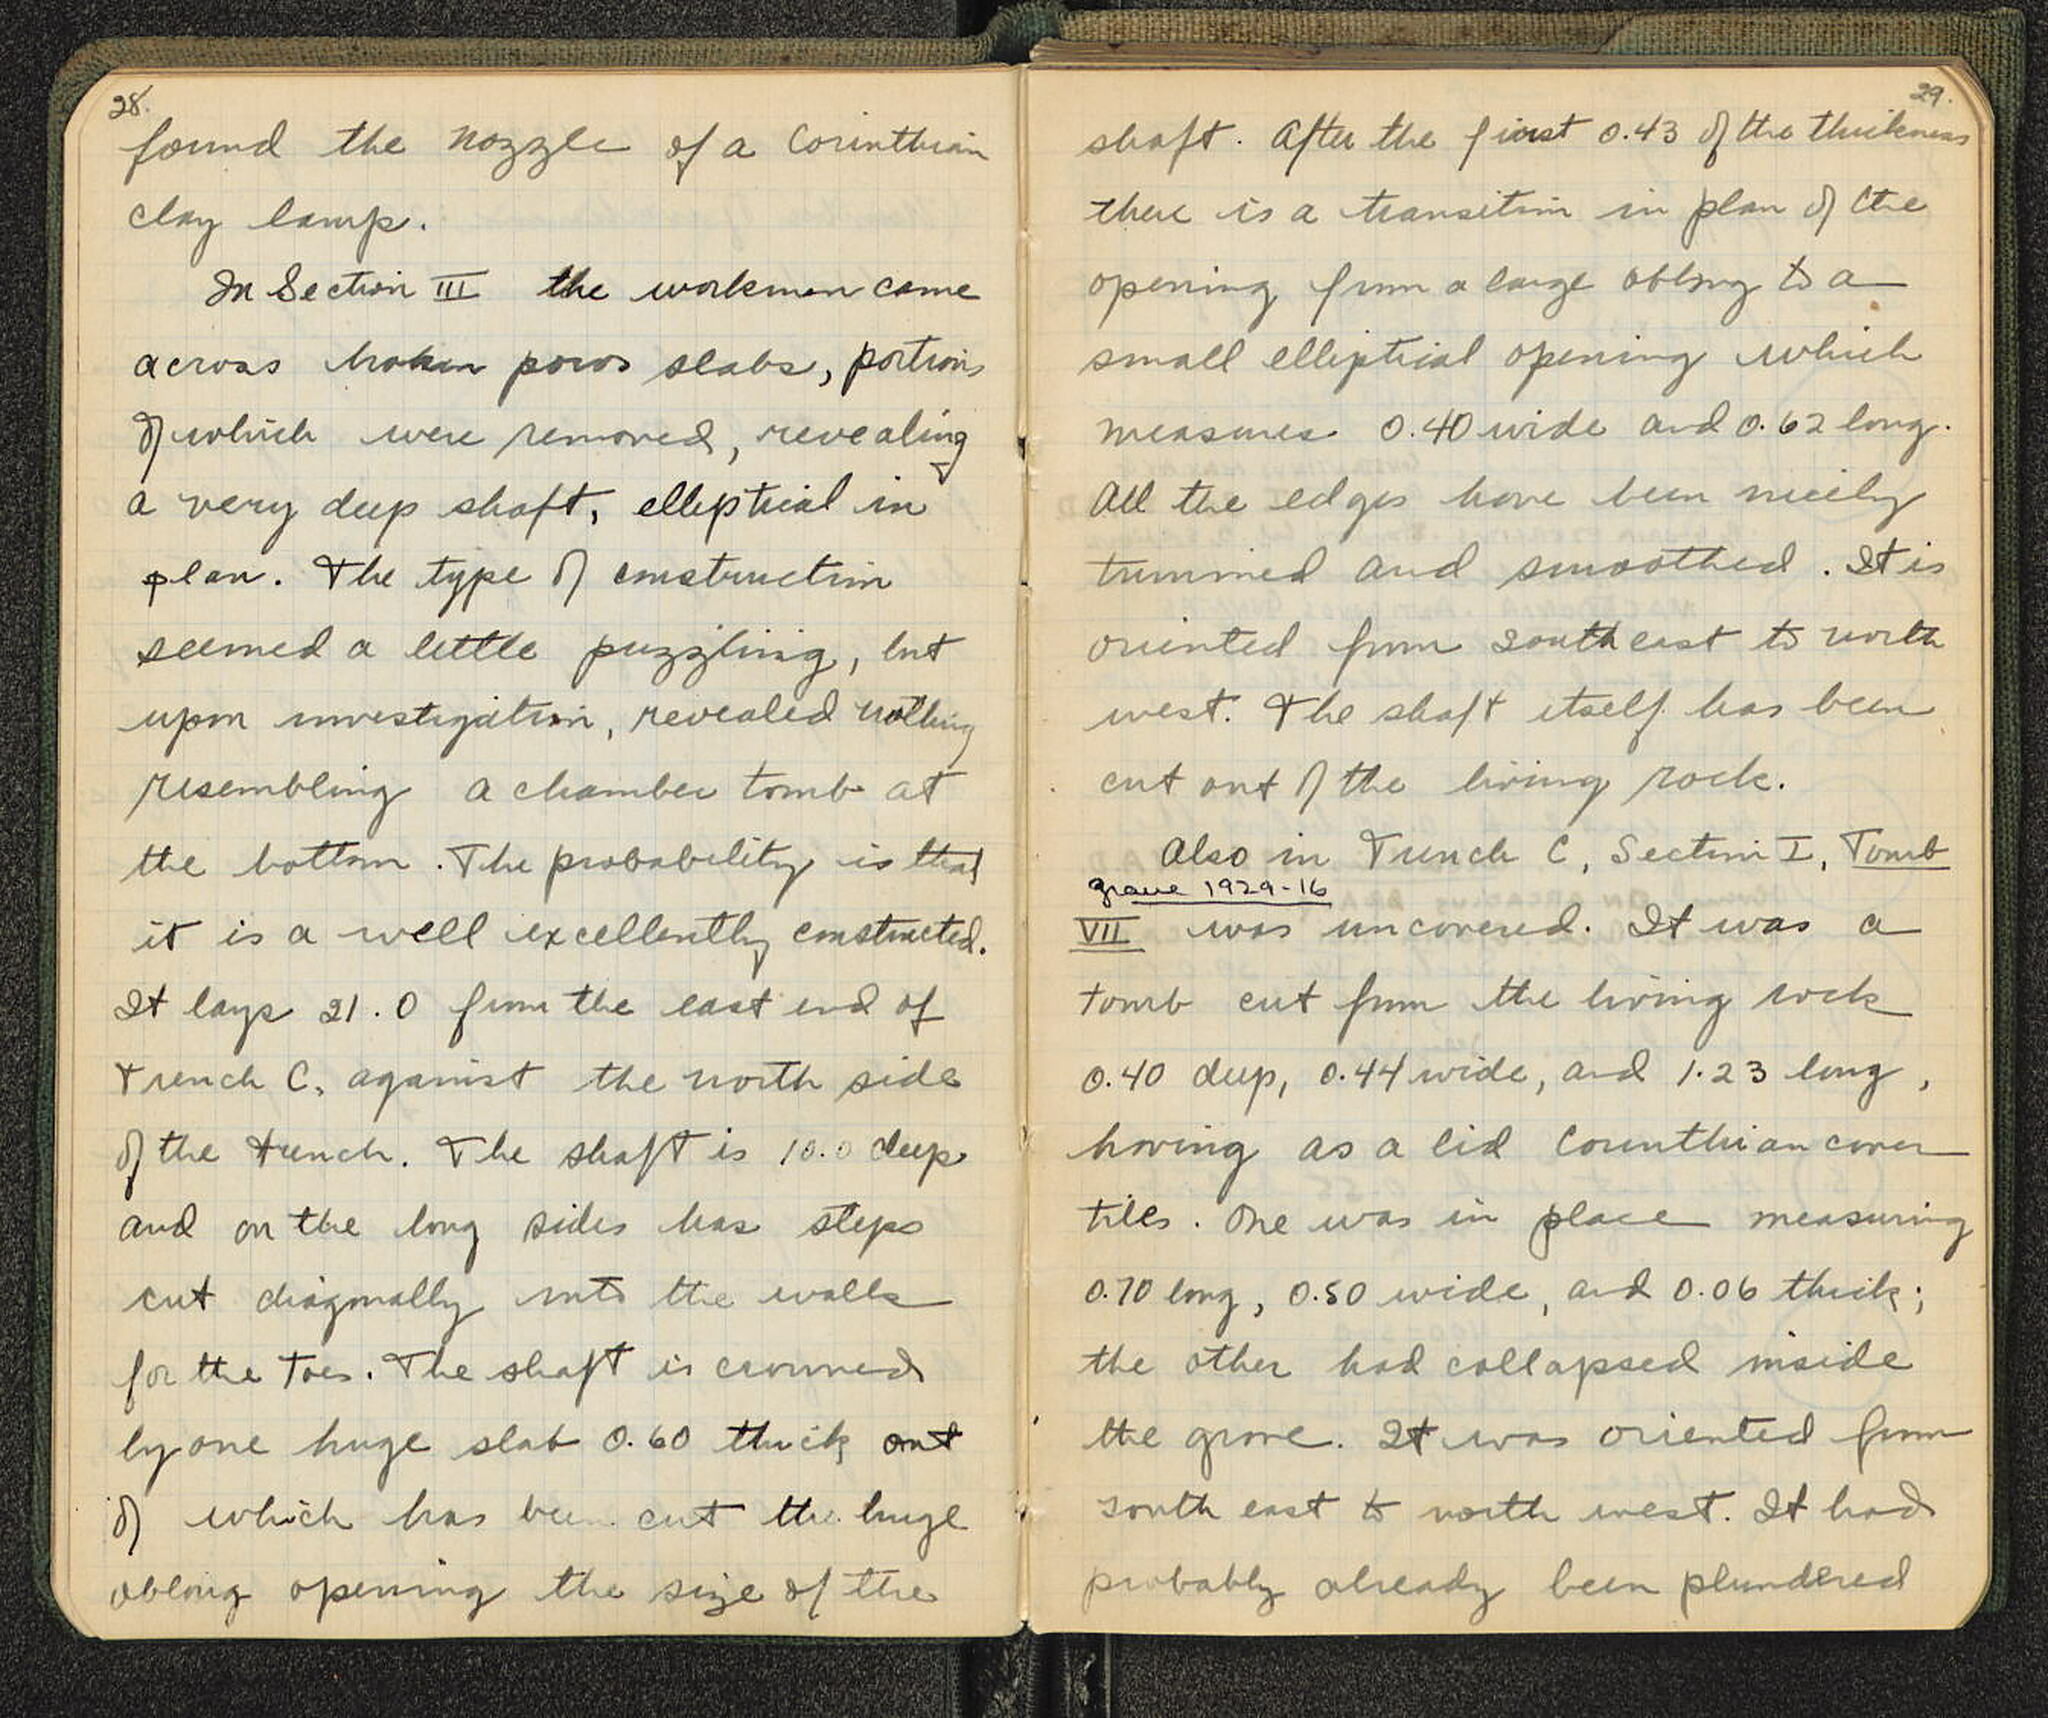 28.
found the nozzle of a Corinthian
clay lamp.
In Section III the workmen came
across broken poros slabs, portions
of which were removed, revealing
a very deep shaft, elliptical in
plan. The type of construction
seemed a little puzzling, but
upon investigation, revealed nothing
resembling a chamber tomb at
the bottom. The probability is that
it is a well excellently constructed.
It lays 21.0 from the east end of
trench C, against the north side
of the trench. The shaft is 10.0 deep
and on the long sides has steps
cut diagonally into the walls
for the toes. The shaft is crowned
by one huge slab 0.60 thick out
of which has been cut the huge
oblong opening the size of the
29.
shaft. After the first 0.43 of the thickness
there is a transition in plan of the
opening from a large oblong to a
small elliptical opening which
measures 0.40 wide and 0.62 long.
All the edges have been nicely
trimmed and smoothed. It is
oriented from south east to north
west. The shaft itself has been
cut out of the living rock.
Also in Trench C, Section I, Tomb
grave 1929-16
VII was uncovered. It was a
tomb cut from the living rock
0.40 deep, 0.44 wide, and 1.23 long,
having as a lid Corinthian cover
tiles. One was in place measuring
0.70 long, 0.50 wide, and 0.06 thick;
the other had collapsed inside
the grave. It was oriented from
south east to north west. It had
probably already been plundered